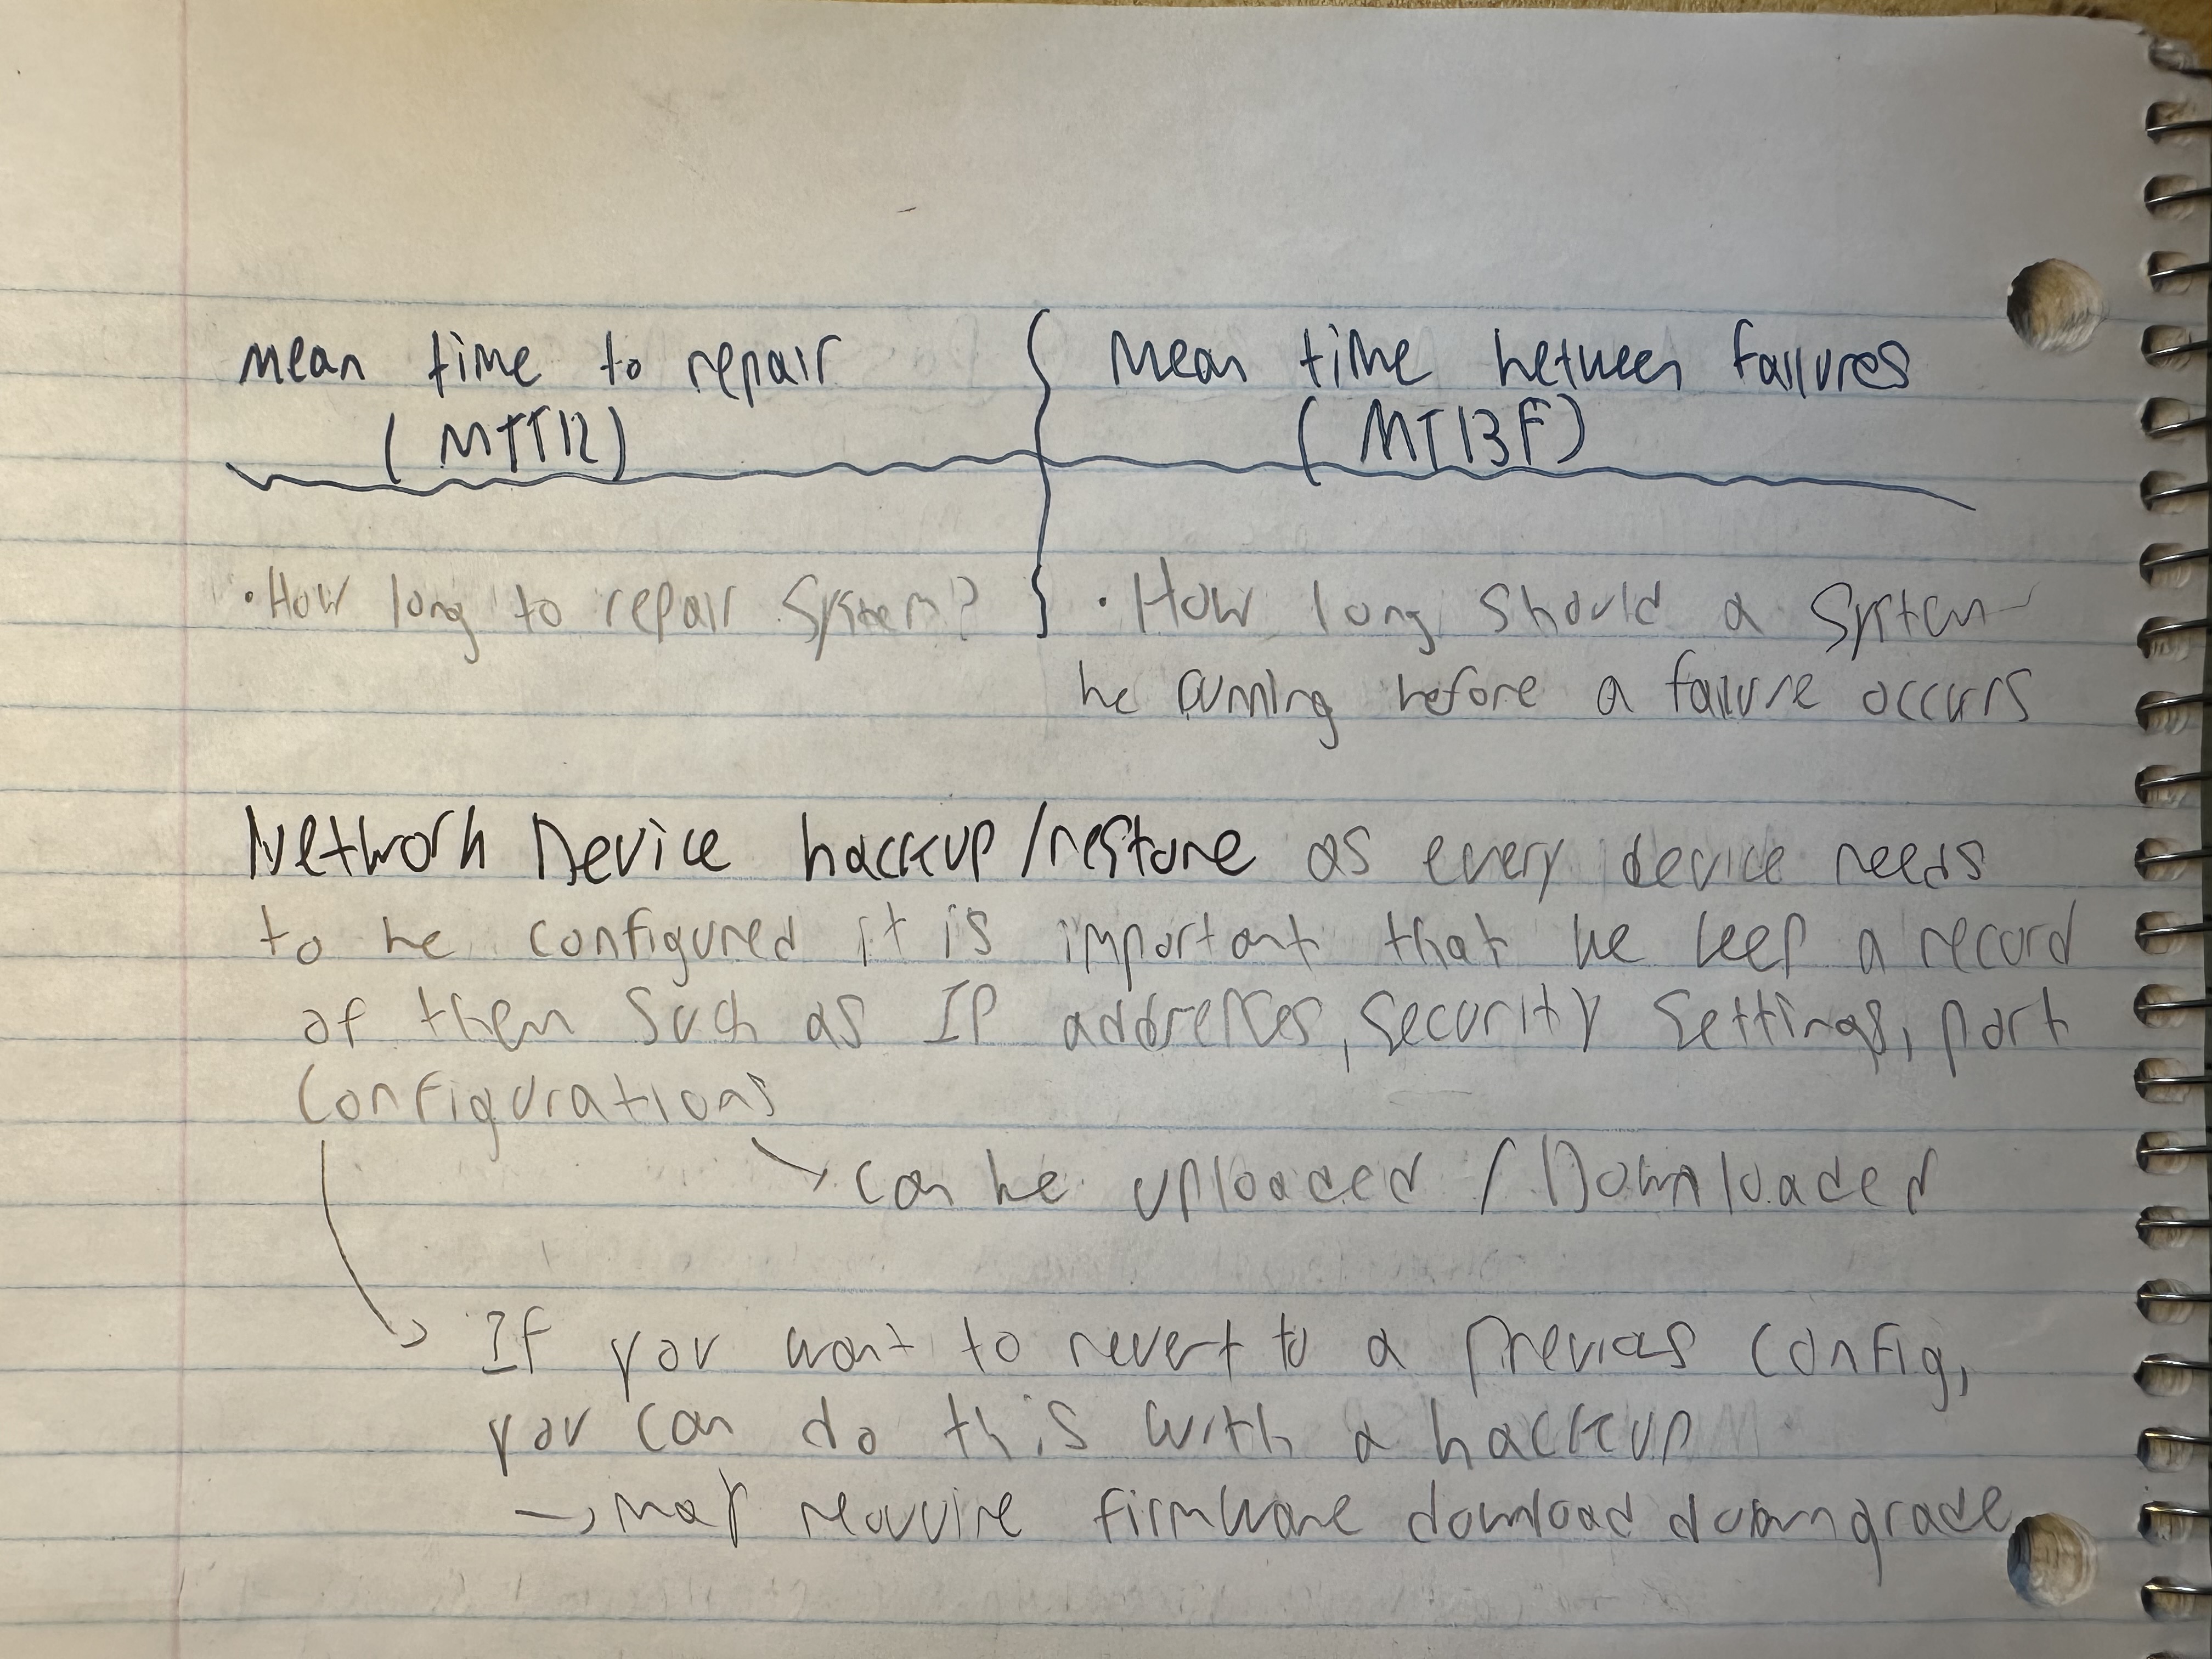 Mean time to repair
(MTTR)
Mean time between failures
(MTBF)
• How long to repair system?
• How long should a system
be running before a failure occurs
Network Device backup/restore as every device needs
to be configured it is important that we keep a record
of them such as IP addresses, security settings, port
configurations
can be uploaded / Downloaded
If you want to revert to a previos config,
you can do this with a backup
→ may require firmware download downgrade